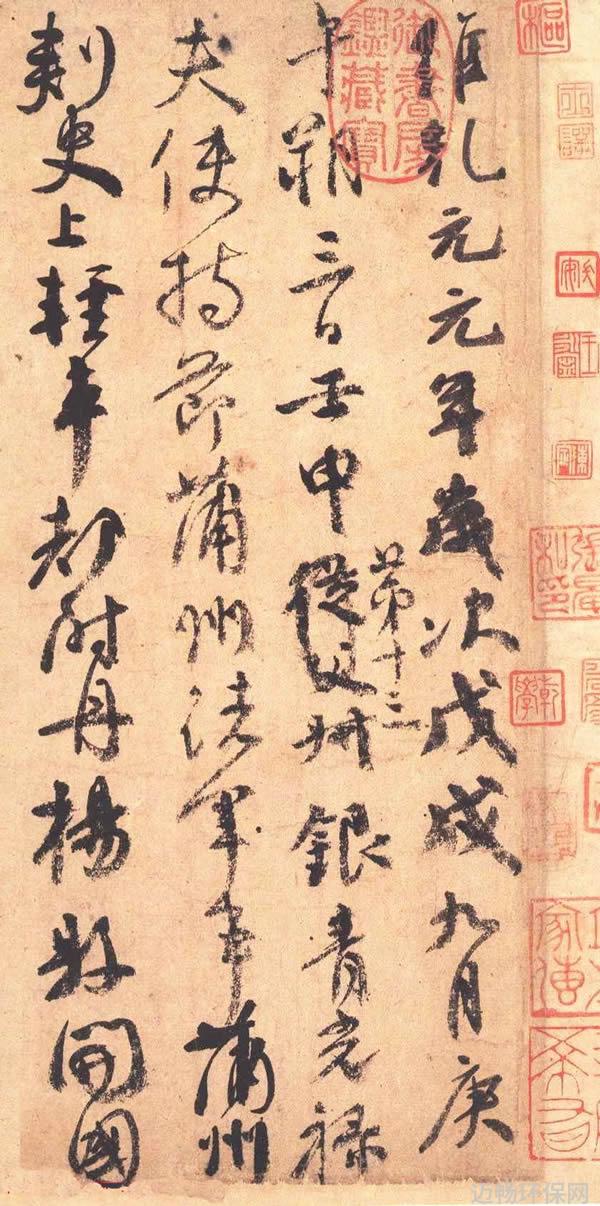 維乾元元年歲次戊戌九月庚
午朔三日壬申從父第十三叔銀青光祿
夫使持節蒲州諸軍事蒲州
刺史上輕車都尉丹楊縣開國
御書房鑑藏寶
乾學
迈畅环保网